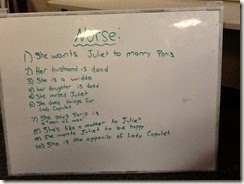 Nurse:
1) She wants Juliet to marry Paris
2) Her husband is dead
3) She is a widow
4) her daughter is dead
5) She nursed Juliet
6) She does things for
Lady Capulet
7) She says Paris is
a "man of wax"
8) She's like a mother to Juliet
9) She wants Juliet to be happy
10) She is the opposite of Lady Capulet